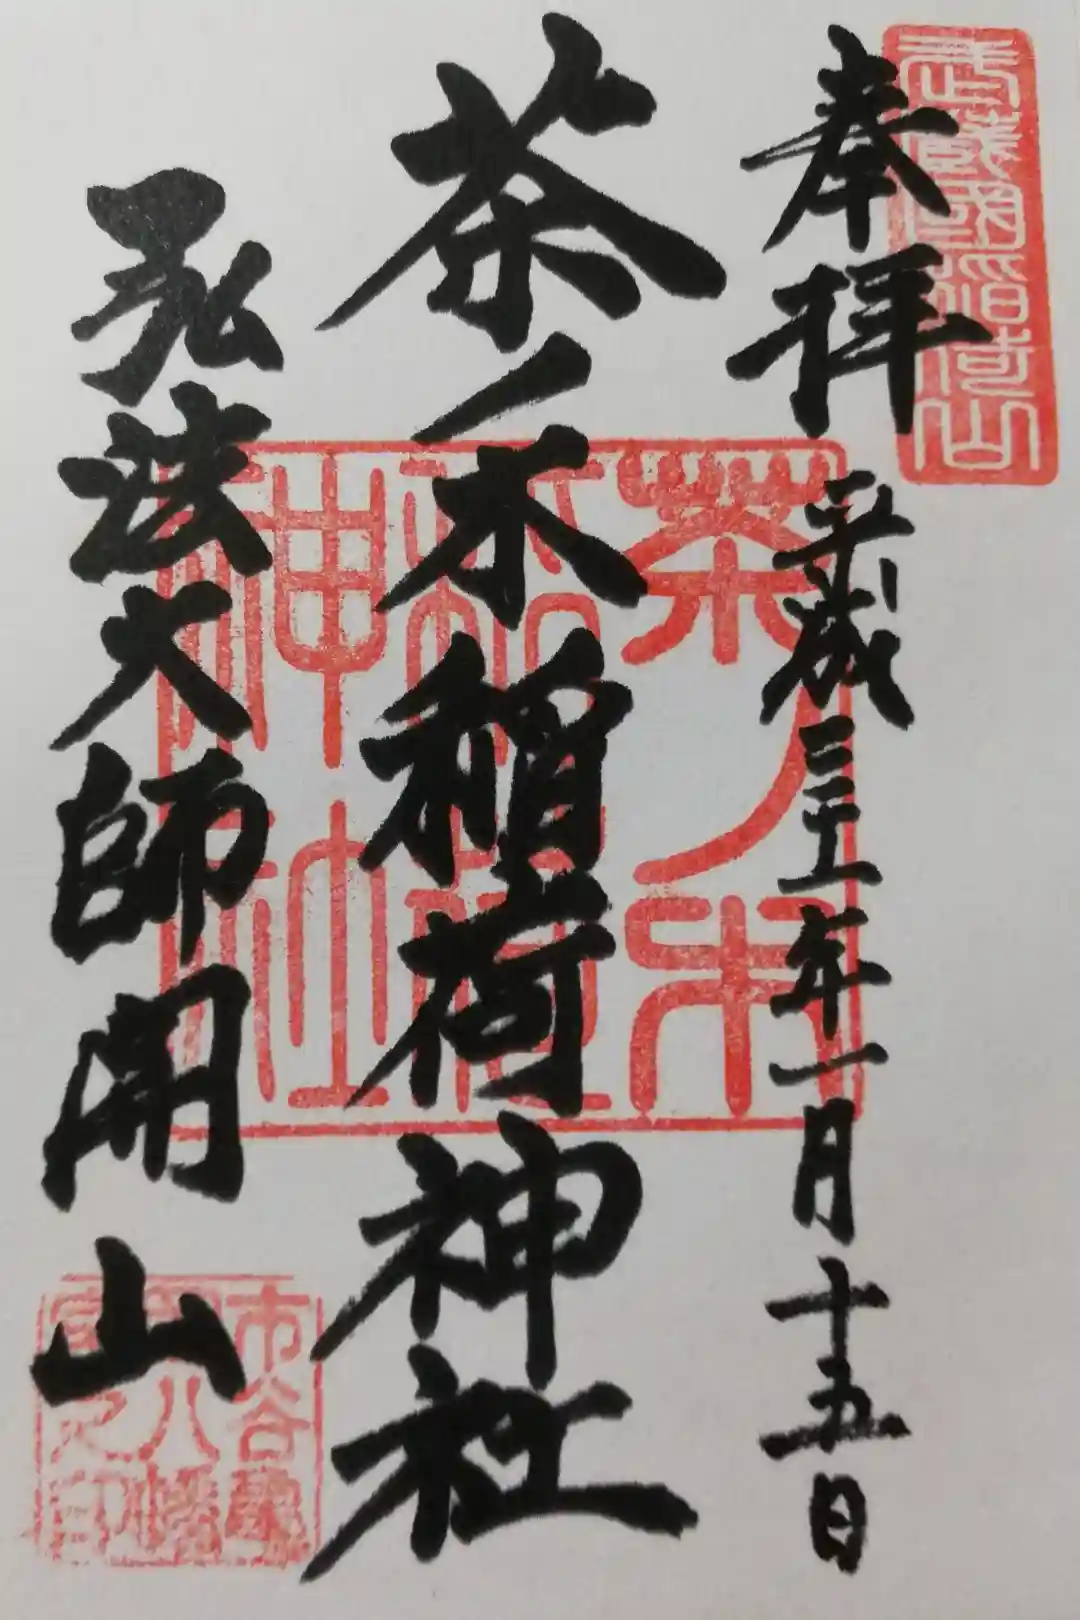 武蔵國稲荷山
奉拝
平成三十一年一月十五日
茶ノ木稲荷神社
茶ノ木
稲荷
神社
弘法大師開山
市谷亀
岡八幡
宮之印